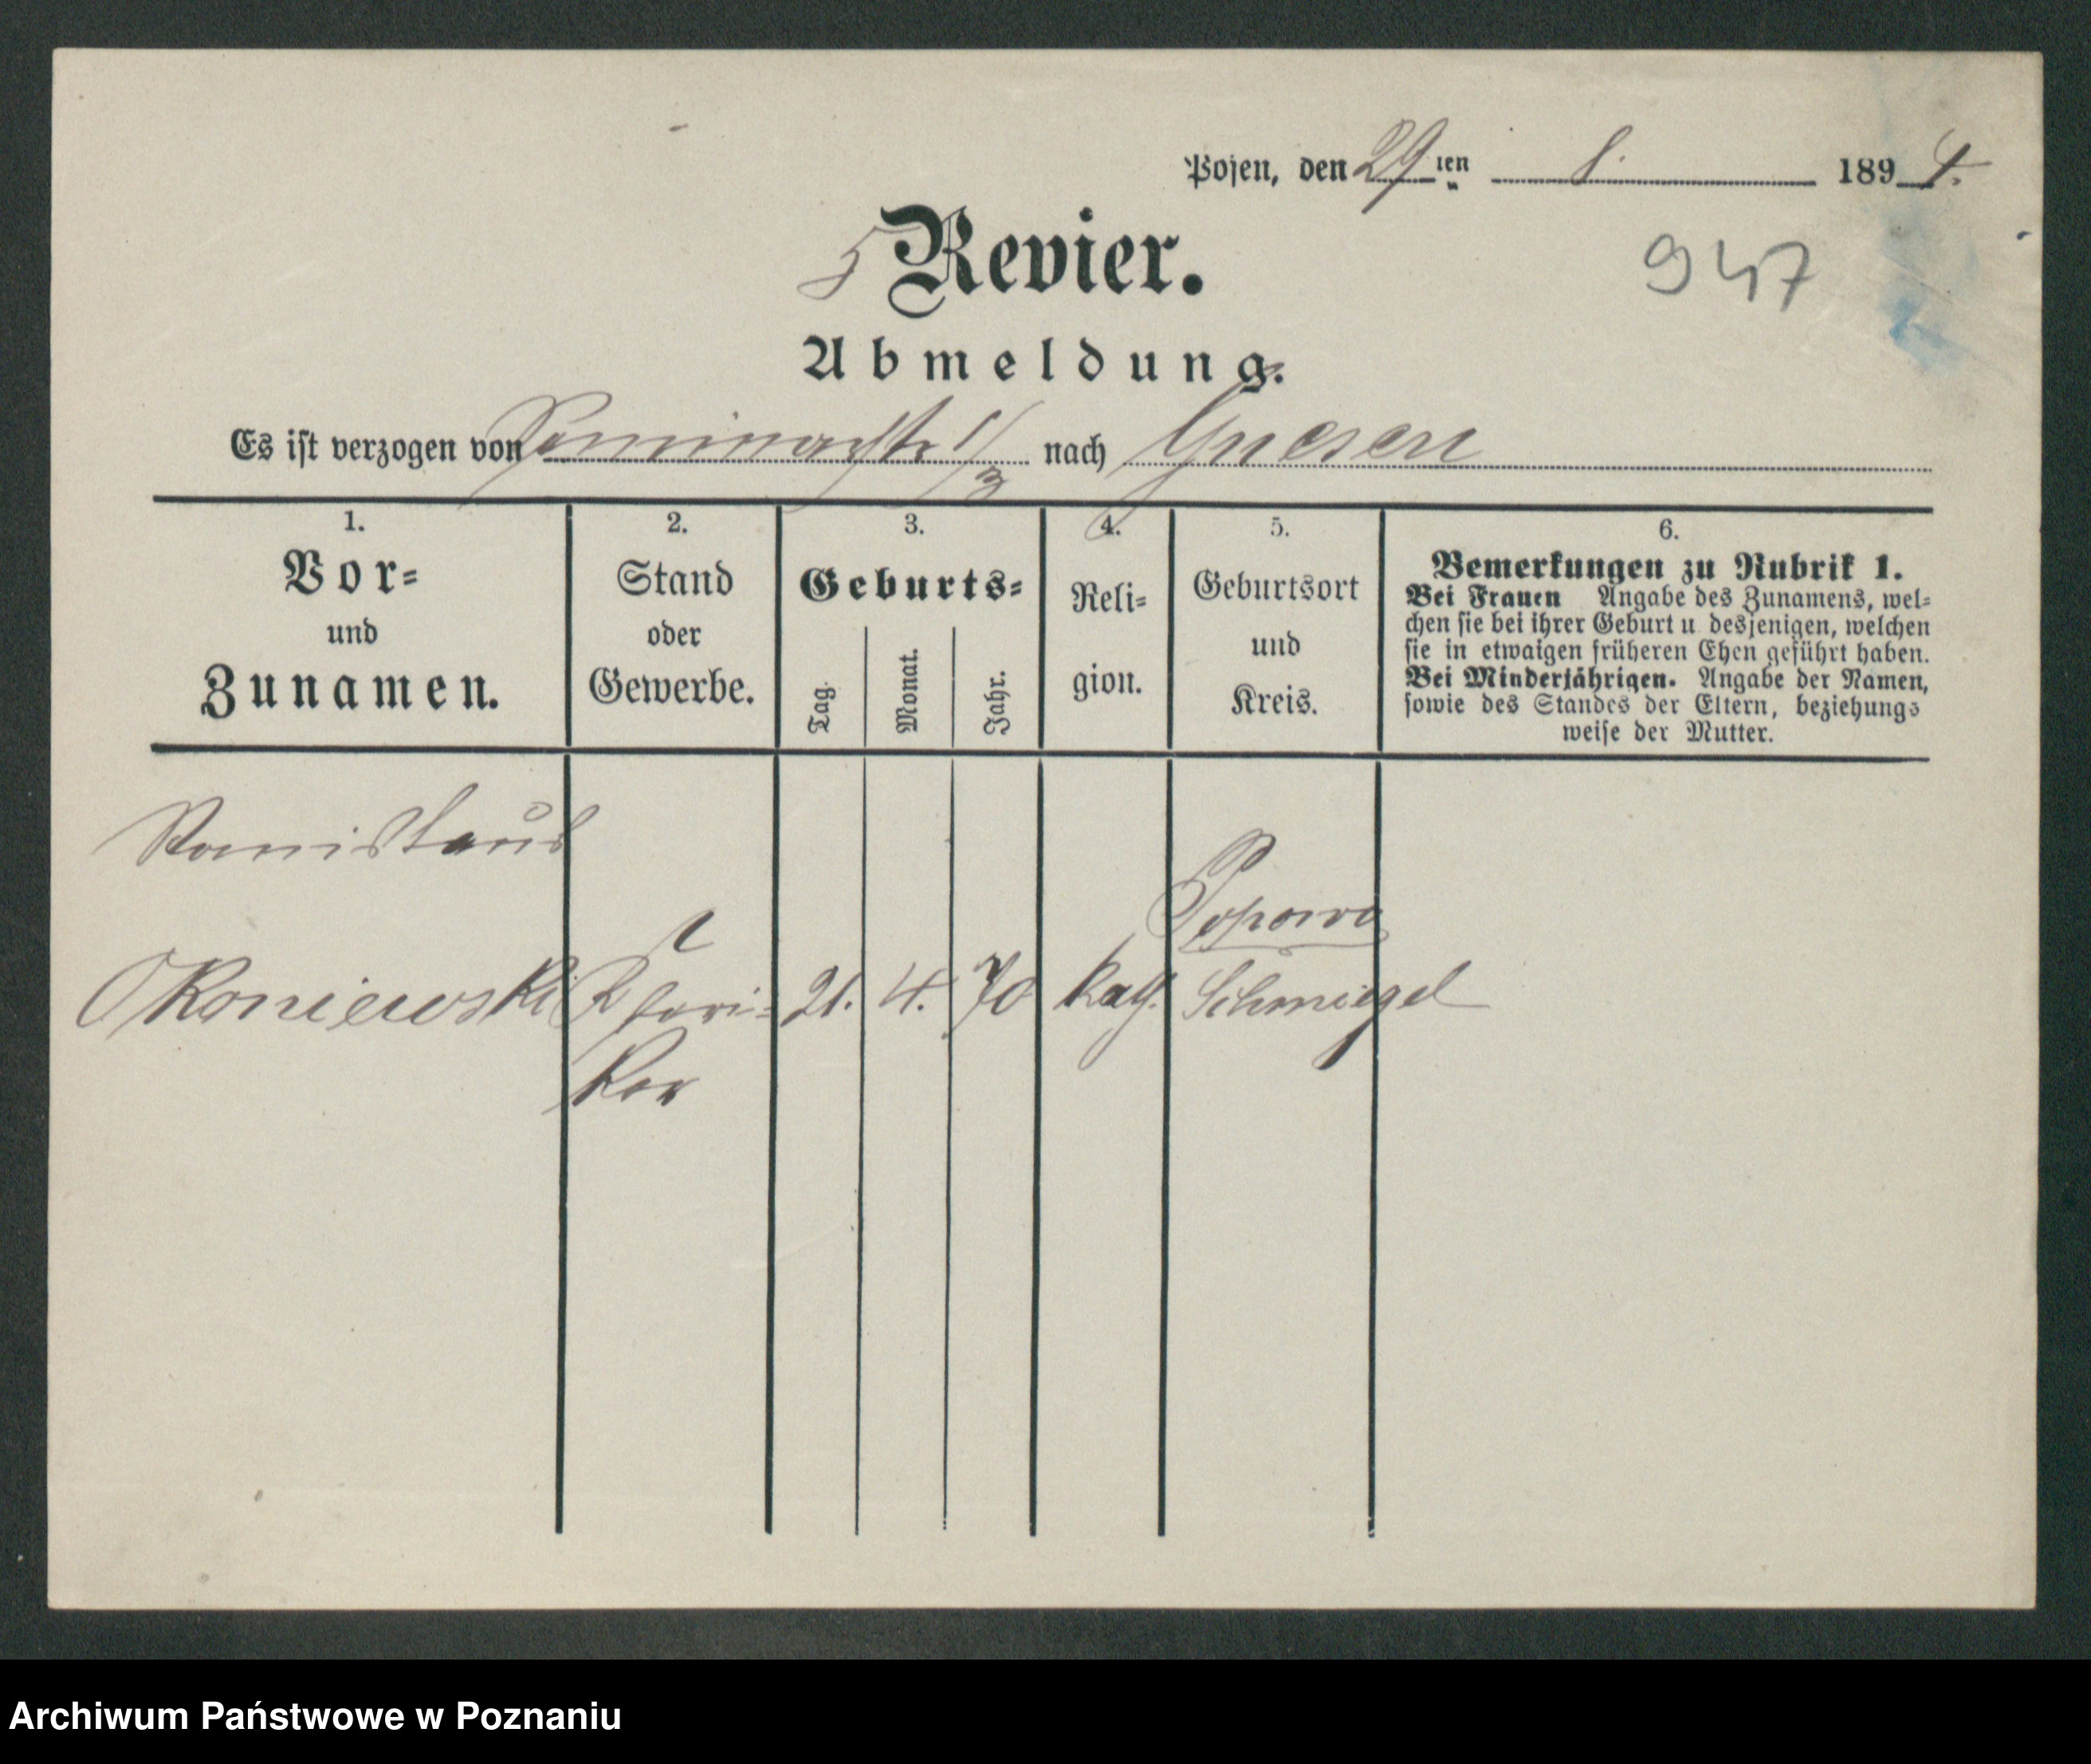 Posen, den 29ten 8. 1894.
5 Revier.
947
Abmeldung.
Es ist verzogen von Seminarstr 1/3 nach Gnesen
1. 2. 3. 4. 5. 6.
Vor- und Zunamen.
Stand oder Gewerbe.
Geburts-
Tag. Monat. Jahr.
Reli-
gion.
Geburtsort und Kreis.
Bemerkungen zu Rubrik 1.
Bei Frauen Angabe des Zunamens, wel-
chen sie bei ihrer Geburt u desjenigen, welchen
sie in etwaigen früheren Ehen geführt haben.
Bei Minderjährigen. Angabe der Namen,
sowie des Standes der Eltern, beziehungs
weise der Mutter.
Stanislaus
Popowo
Okoniewski 21. 4. 70 Kath. Schmiegel
ker
Archiwum Państwowe w Poznaniu